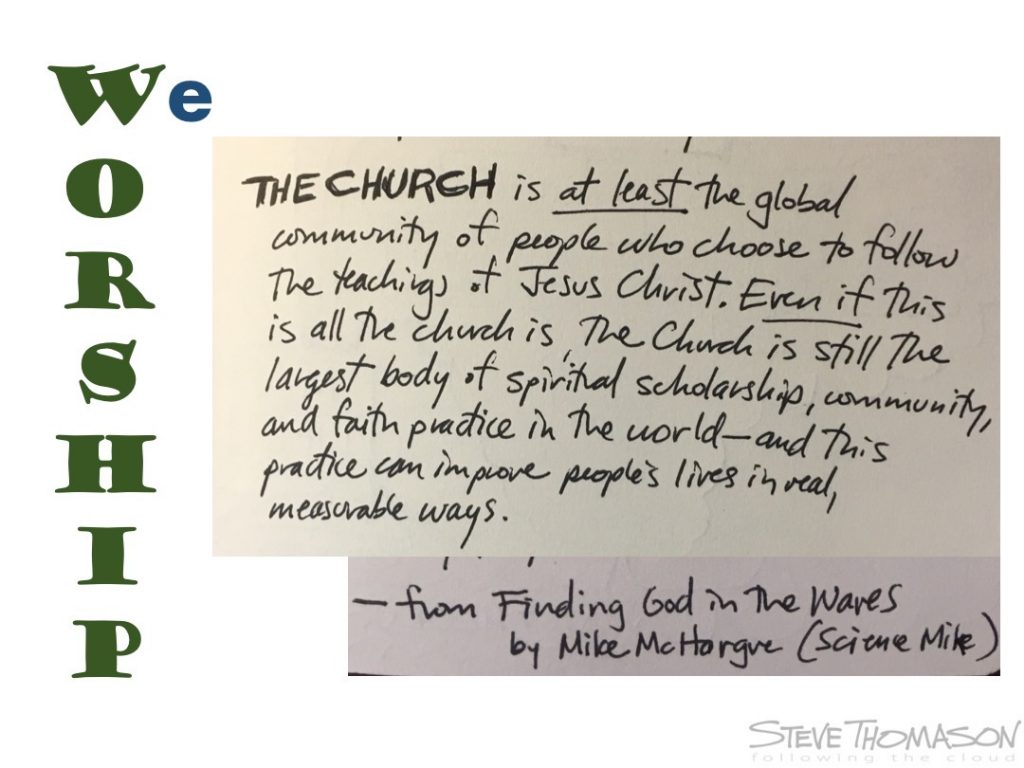 We
O
R
S
H
I
P
THE CHURCH is at least the global
community of people who choose to follow
the teachings of Jesus Christ. Even if this
is all the church is, the Church is still the
largest body of spiritual scholarship, community,
and faith practice in the world—and this
practice can improve people's lives in real,
measurable ways.
— from Finding God in the Waves
by Mike McHargue (Science Mike)
STEVE THOMASON
following the cloud